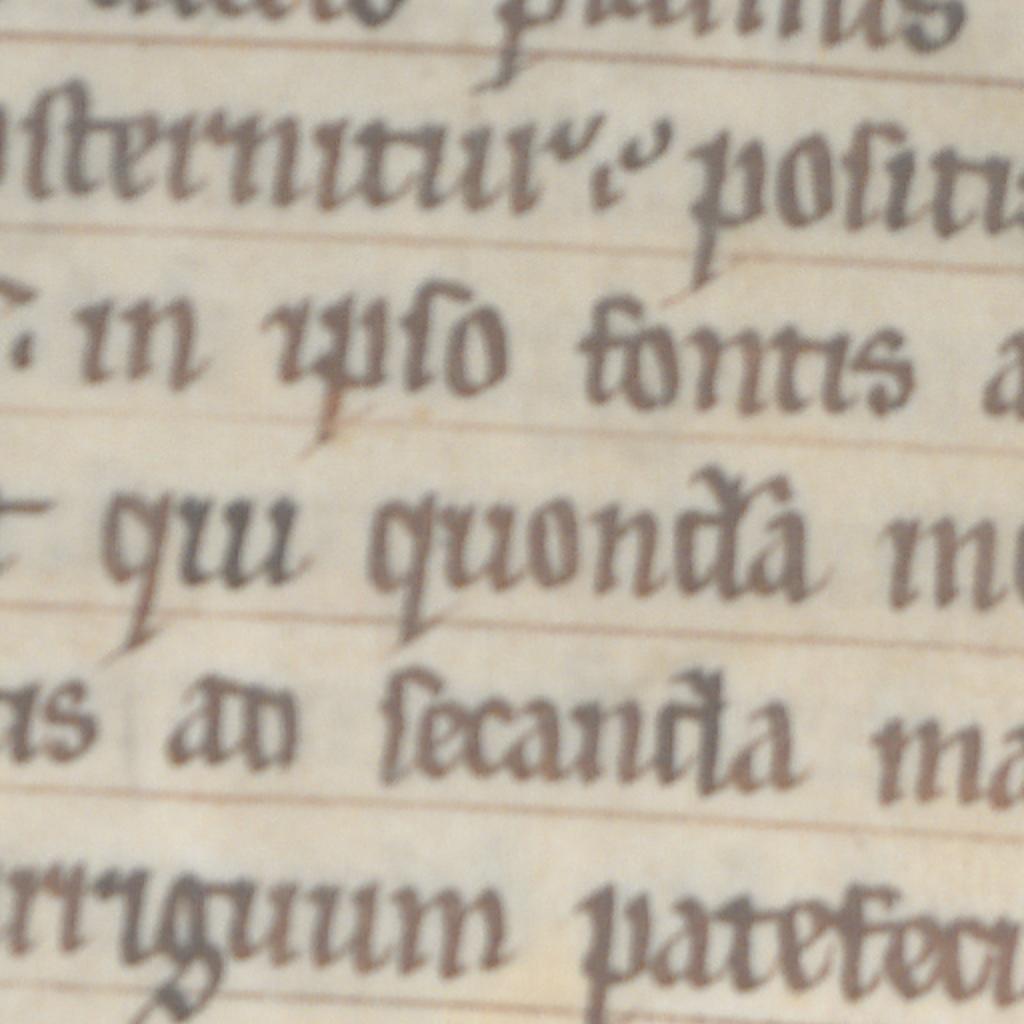 sternitur positi
in ipso fontis a
qui quondā in
as ad secanda ma
rriguum patefeci